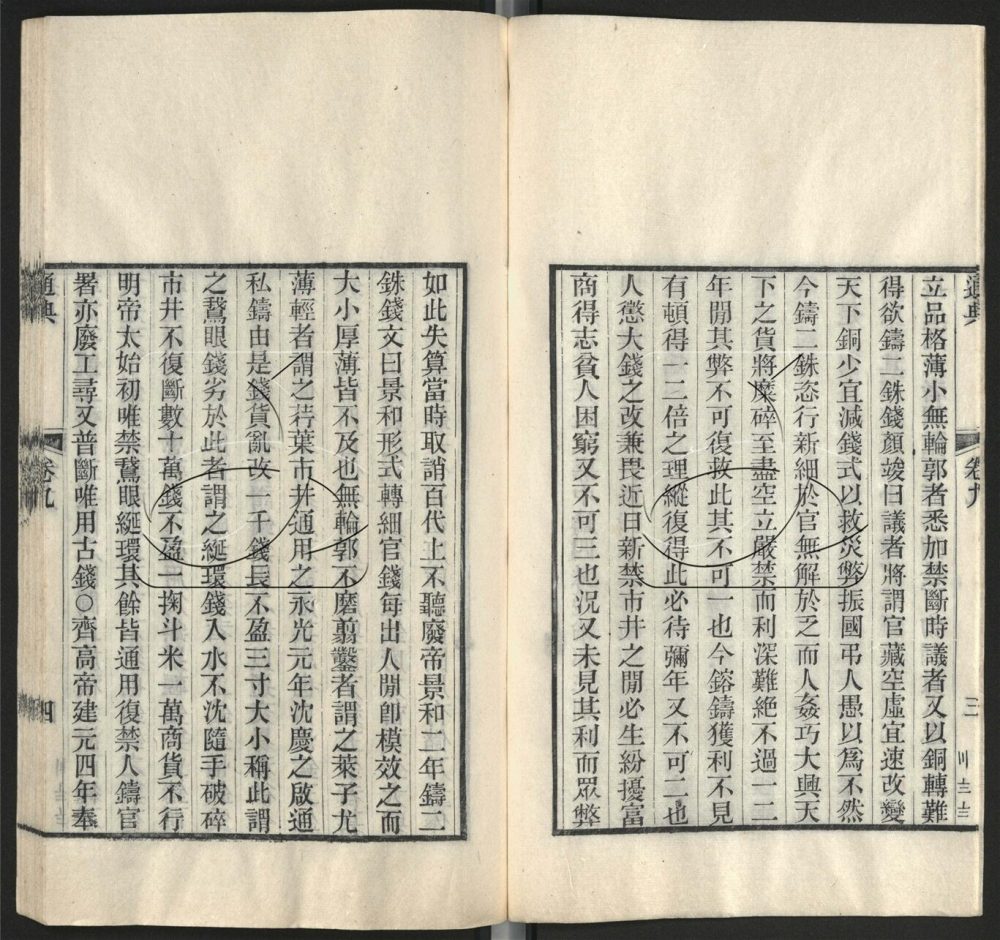 通典
卷九
三
立品格薄小無輪郭者悉加禁斷時議者又以銅轉難
得欲鑄二銖錢顏竣曰議者將謂官藏空虛宜速改變
天下銅少宜減錢式以救災弊振國弔人愚以爲不然
今鑄二銖恣行新細於官無解於乏而人姦巧大興天
下之貨將糜碎至盡空立嚴禁而利深難絕不過一二
年閒其弊不可復救此其不可一也今鎔鑄獲利不見
有頓得一二倍之理縱復得此必待彌年又不可二也
人懲大錢之改兼畏近日新禁市井之閒必生紛擾富
商得志貧人困窮又不可三也況又未見其利而眾弊
如此失算當時取誚百代上不聽廢帝景和二年鑄二
銖錢文曰景和形式轉細官錢每出人閒卽模效之而
大小厚薄皆不及也無輪郭不磨翦鑿者謂之萊子尤
薄輕者謂之荇葉市井通用之永光元年沈慶之啟通
私鑄由是錢貨亂改一千錢長不盈三寸大小稱此謂
之鵞眼錢劣於此者謂之綖環錢入水不沈隨手破碎
市井不復斷數十萬錢不盈一掬斗米一萬商貨不行
明帝太始初唯禁鵞眼綖環其餘皆通用復禁人鑄官
署亦廢工尋又普斷唯用古錢○齊高帝建元四年奉
通典
卷九
四